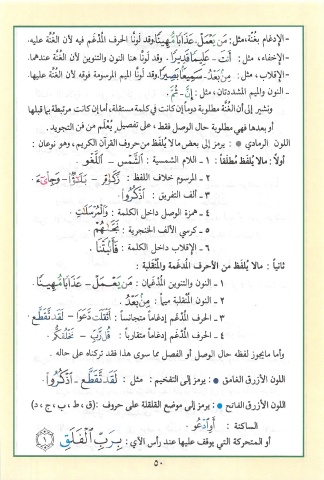 -الإدغام بغُنّة،مثل: مَن يَعْمَلْ- عَذَابًا مُّهِينًا وقد لوَّنا الحرف المُدْغَم فيه لأن الغُنّة عليه.
-الإخفاء، مثل: أَنتَ - عَلِيمًا قَدِيرًا. وقد لوَّنا هنا النون والتنوين لأن الغُنّة عندهما.
-الإقلاب، مثل: مِنۢ بَعْدُ - سَمِيعًۢا بَصِيرًا. وقد لوَّنا الميم المرسومة فوقه لأن الغُنّة عليها.
- النون والميم المشددتان، مثل: إِنَّ - ثُمَّ .
ونشير إلى أن الغُنّة مطلوبة دوماً إن كانت في كلمة مستقلة، أما إن كانت مرتبطة بما قبلها
أو بعدها فهي مطلوبة حال الوصل فقط ، على تفصيل يُعْلَم من فن التجويد .
اللون الرمادي : يرمز إلى بعض مالا يُلفَظ من حروف القرآن الكريم ، وهو نوعان :
أولاً : مالا يُلفَظ مُطلَقاً : ١ - اللام الشمسية : الشَّمْس - اللَّغْو
٢ - المرسوم خلاف اللفظ :
٣ - ألف التفريق : اذْكُرُوا
٤ - همزة الوصل داخل الكلمة : وَالْمُرْسَلَاتِ
٥ - كرسي الألف الخنجرية :
٦ - الإقلاب داخل الكلمة : فَأَنۢبَتْنَا
ثانياً : مالا يُلفَظ من الأحرف المدغمة والمُنْقَلبة :
١ - النون والتنوين المُدْغمان : مَن يَعْمَلْ - عَذَابًا مُّهِينًا .
٢ - النون المُنْقَلبة ميماً : مِنۢ بَعْدُ .
٣ - الحرف المُدْغم إدغاماً متجانساً : أَثْقَلَت دَّعَوَا - لَقَد تَّقَطَّعَ .
٤ - الحرف المُدْغم إدغاماً متقارباً : قُل رَّبِّ - نَخْلُقكُّم .
وأما مايجوز لفظه حال الوصل أو الفصل مما سوى هذا فقد تركناه على حاله .
اللون الأزرق الغامق : يرمز إلى التفخيم : مثل : لَقَد تَّقَطَّعَ - اذْكُرُوا .
اللون الأزرق الفاتح : يرمز إلى موضع القلقلة على حروف : (ق ، ط ، ب ، ج ، د)
الساكنة : أَوِ ادْعُو .
أو المتحركة التي يوقف عليها عند رأس الآي : بِرَبِّ الْفَلَقِ ١
٥٠